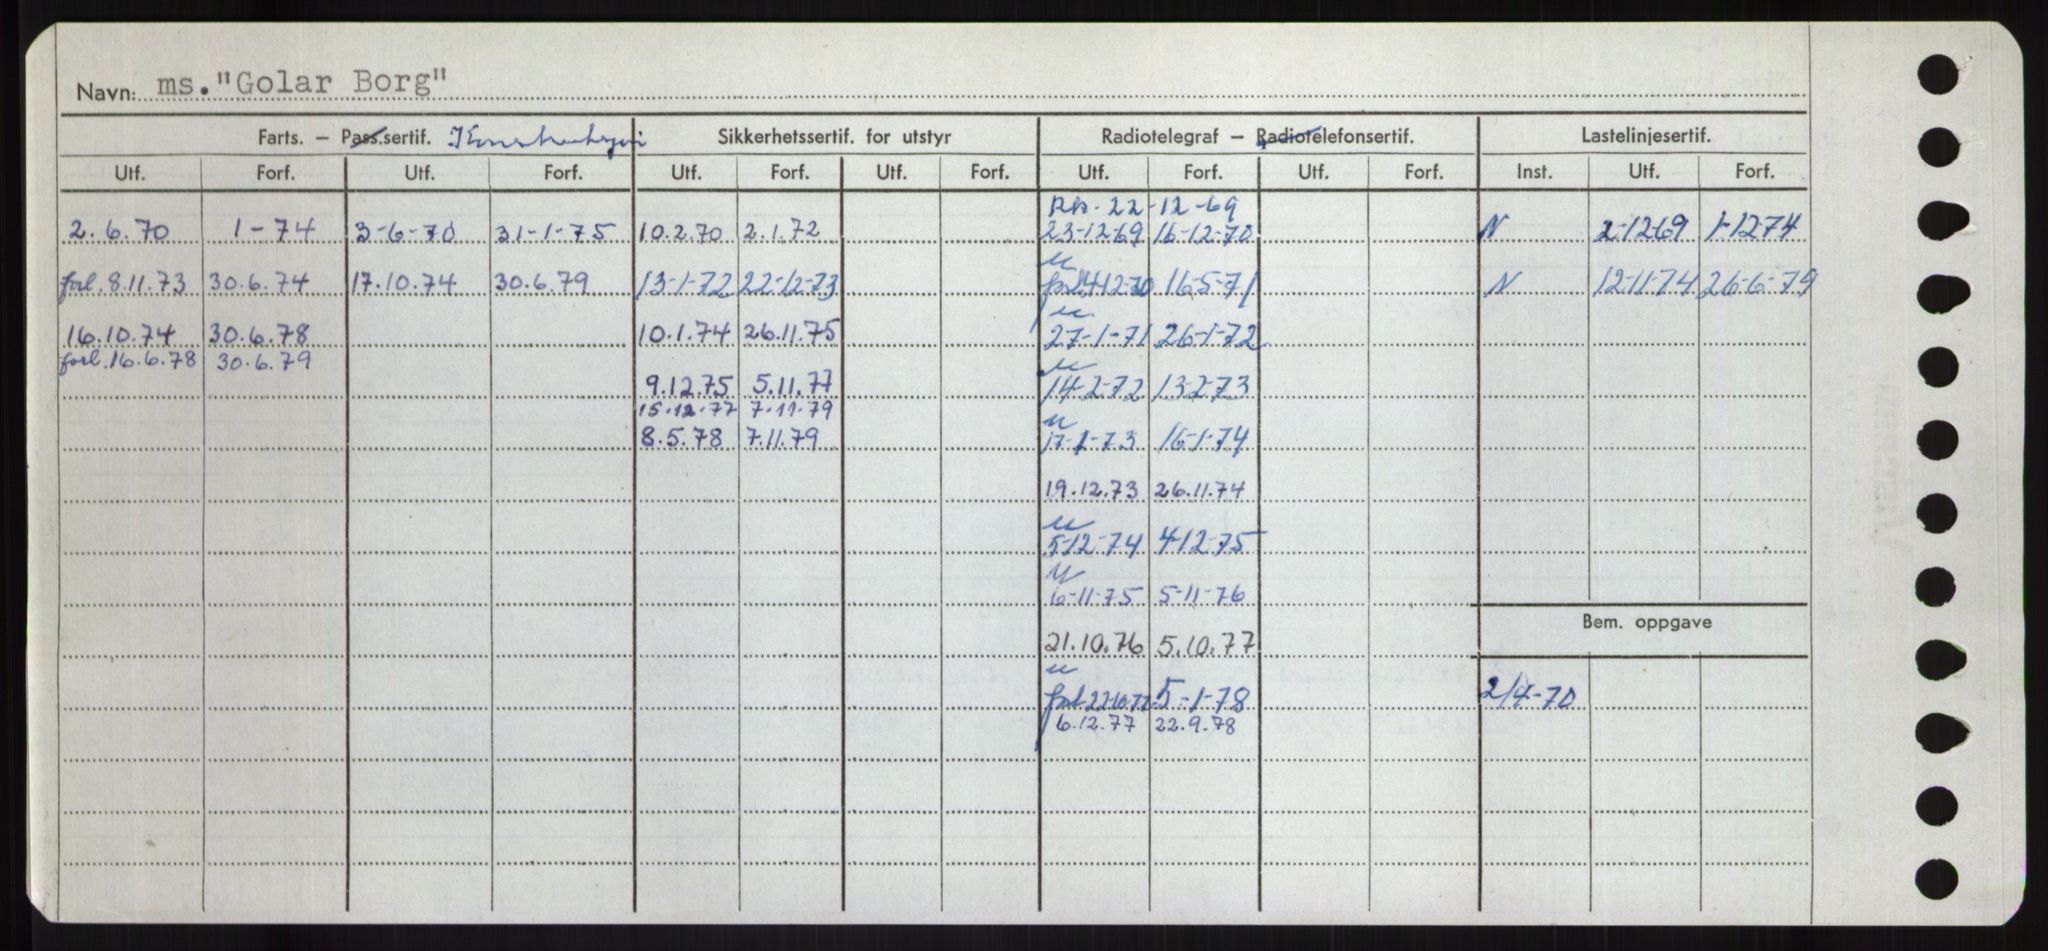 Navn: ms. "Golar Borg"
Farts. – Pass.sertif. Konstruksjon Sikkerhetssertif. for utstyr Radiotelegraf – Radiotelefonsertif. Lastelinjesertif.
Utf. Forf. Utf. Forf. Utf. Forf. Utf. Forf. Utf. Forf. Utf. Forf. Inst. Utf. Forf.
22-12-69
2.6.70 1-74 3-6-70 31-1-75 10.2.70 2.1.72 23-12-69 16-12-70 N 2-12-69 1-12-74
forl. 8.11.73 30.6.74 17.10.74 30.6.79 13-1-72 22-12-73 forl. 14-12-70 16-5-71 N 12-11-74 26-6-79
16.10.74 30.6.78 10.1.74 26.11.75 27-1-71 26-1-72
forl. 16.6.78 30.6.79
9.12.75 5.11.77 14-2-72 13-2-73
15.12.77 7.11.79
8.5.78 7.11.79 17-1-73 16-1-74
19.12.73 26.11.74
5-12-74 4-12-75
6-11-75 5-11-76
Bem. oppgave
21.10.76 5.10.77
forl. 22-10-77 5-1-78 2/4-70
6.12.77 22.9.78